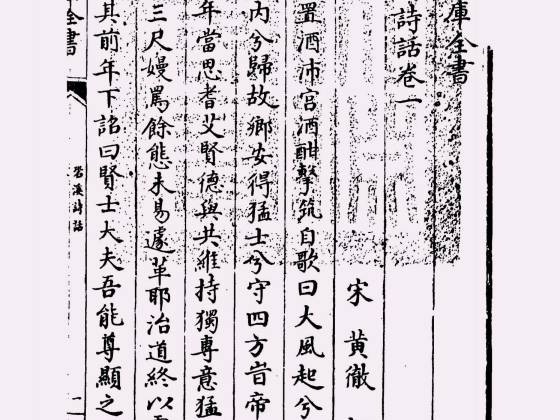 庫全書
詩話卷一
宋 黄徹
置酒沛宫酒酣擊筑自歌曰大風起兮
内兮歸故鄉安得猛士兮守四方旹帝
年當思耆艾賢德與共維持獨専意猛
三尺嫚罵餘態未易遽革耶治道終以
其前年下詔曰賢士大夫吾能尊顯之
全書
䂬溪詩話
一